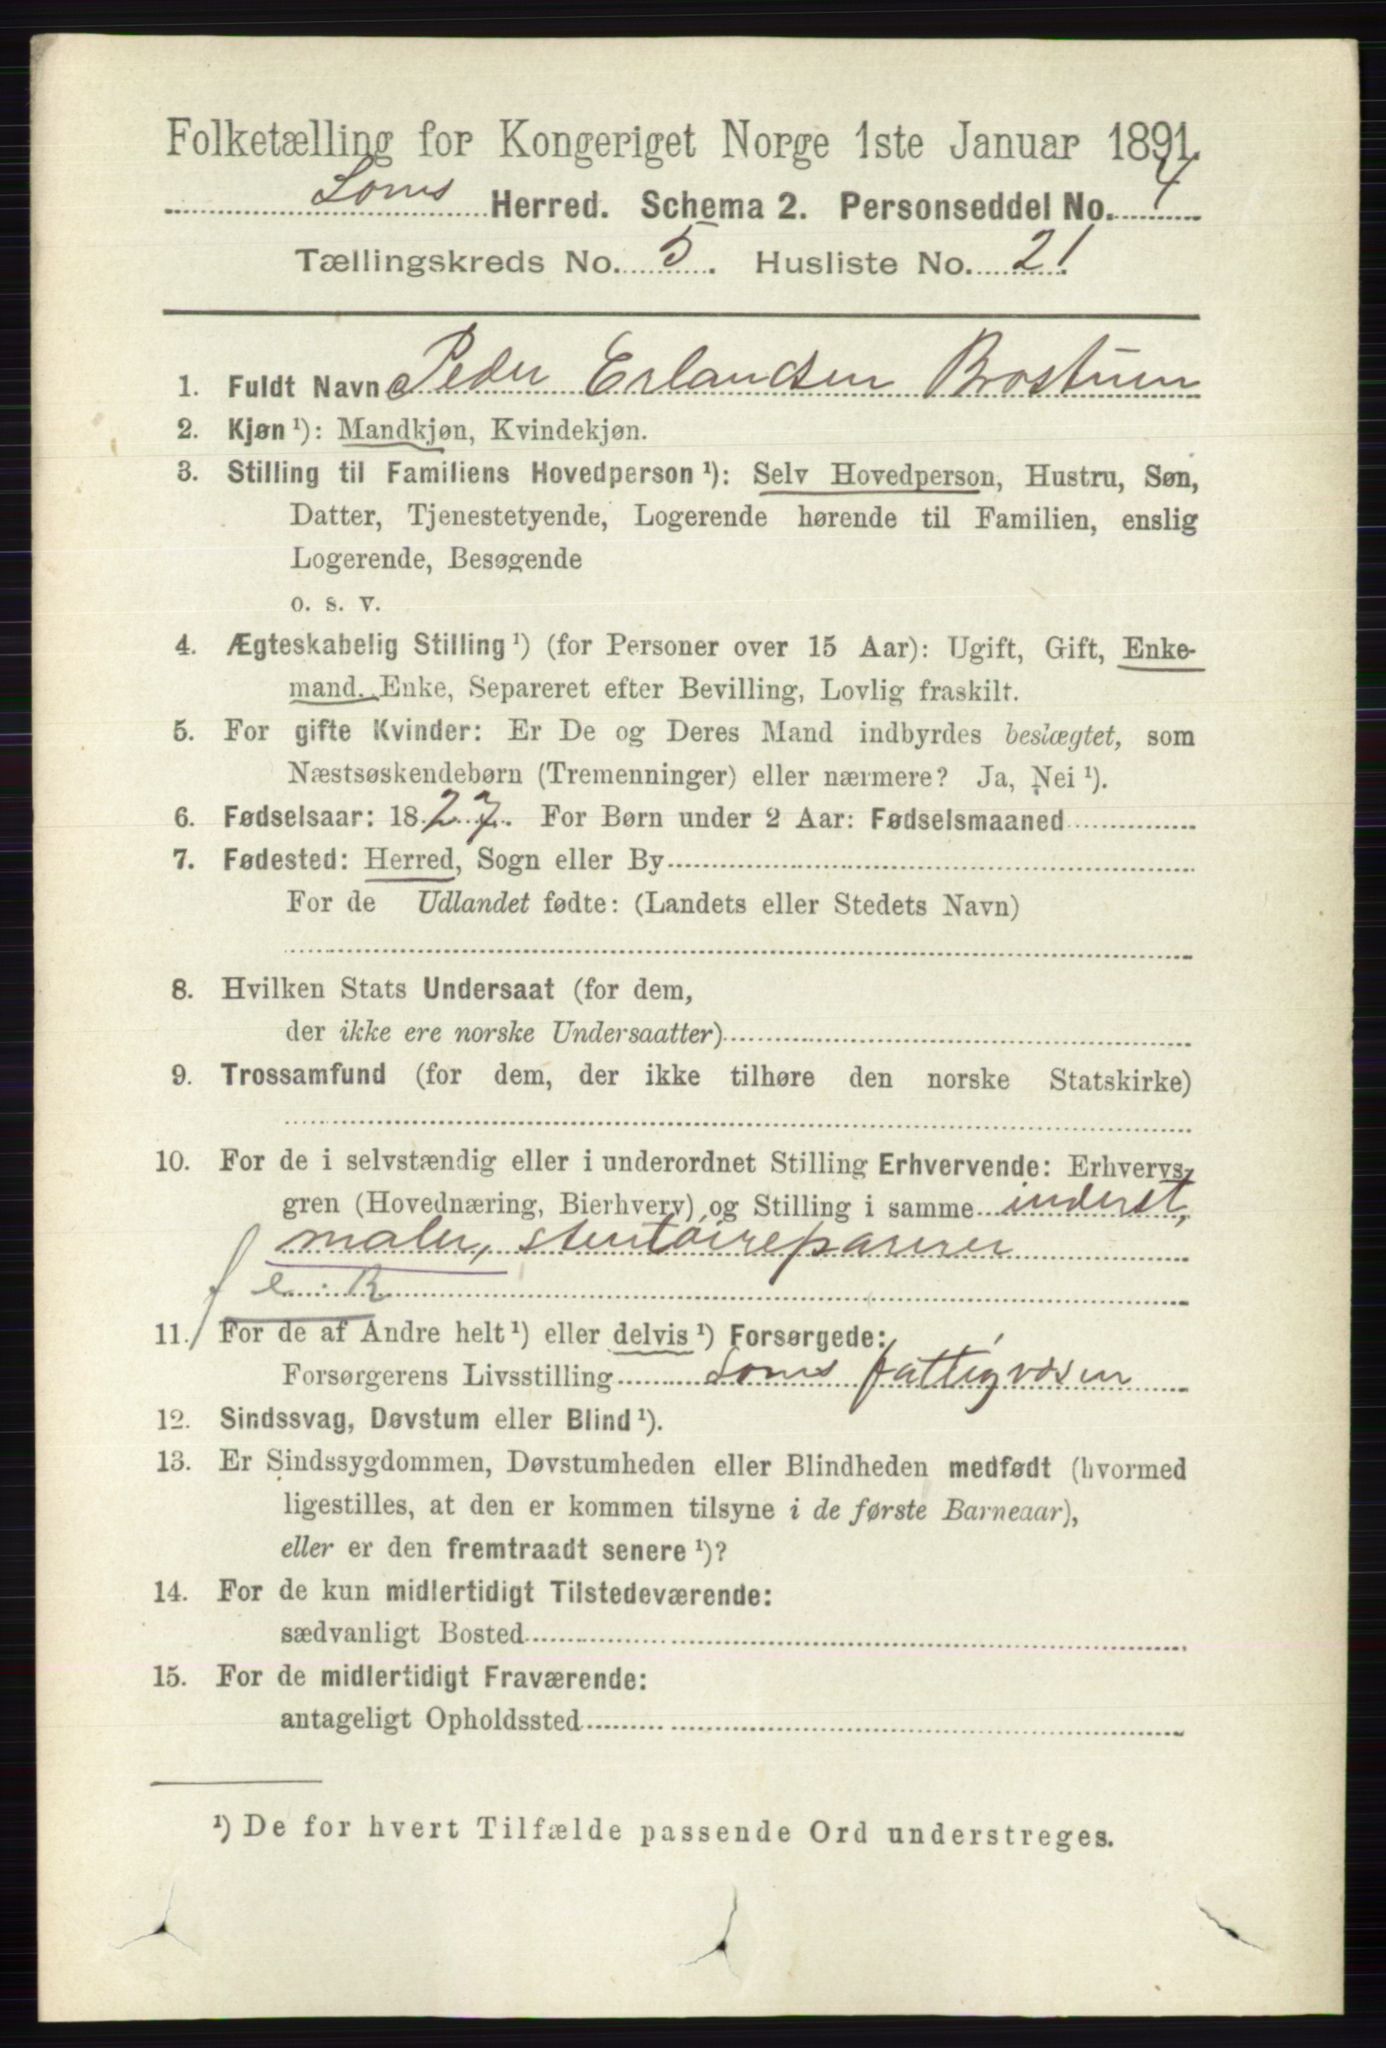 Folketælling for Kongeriget Norge 1ste Januar 1891.
Loms Herred. Schema 2. Personseddel No. 4
Tællingskreds No. 5. Husliste No. 21.
1. Fuldt Navn Peder Erlandsen Brostuen
2. Kjøn ¹): Mandkjøn, Kvindekjøn.
3. Stilling til Familiens Hovedperson ¹): Selv Hovedperson, Hustru, Søn,
Datter, Tjenestetyende, Logerende hørende til Familien, enslig
Logerende, Besøgende
o. s. v.
4. Ægteskabelig Stilling ¹) (for Personer over 15 Aar): Ugift, Gift, Enke-
mand, Enke, Separeret efter Bevilling, Lovlig fraskilt.
5. For gifte Kvinder: Er De og Deres Mand indbyrdes beslægtet, som
Næstsøskendebørn (Tremenninger) eller nærmere? Ja, Nei ¹).
6. Fødselsaar: 1827. For Børn under 2 Aar: Fødselsmaaned
7. Fødested: Herred, Sogn eller By
For de Udlandet fødte: (Landets eller Stedets Navn)
8. Hvilken Stats Undersaat (for dem,
der ikke ere norske Undersaatter)
9. Trossamfund (for dem, der ikke tilhøre den norske Statskirke)
10. For de i selvstændig eller i underordnet Stilling Erhvervende: Erhvervs-
gren (Hovednæring, Bierhverv) og Stilling i samme inderst,
maler, stentøireparerer
11. For de af Andre helt ¹) eller delvis ¹) Forsørgede:
Forsørgerens Livsstilling Loms fattigvæsen
12. Sindssvag, Døvstum eller Blind ¹).
13. Er Sindssygdommen, Døvstumheden eller Blindheden medfødt (hvormed
ligestilles, at den er kommen tilsyne i de første Barneaar),
eller er den fremtraadt senere ¹)?
14. For de kun midlertidigt Tilstedeværende:
sædvanligt Bosted
15. For de midlertidigt Fraværende:
antageligt Opholdssted
¹) De for hvert Tilfælde passende Ord understreges.